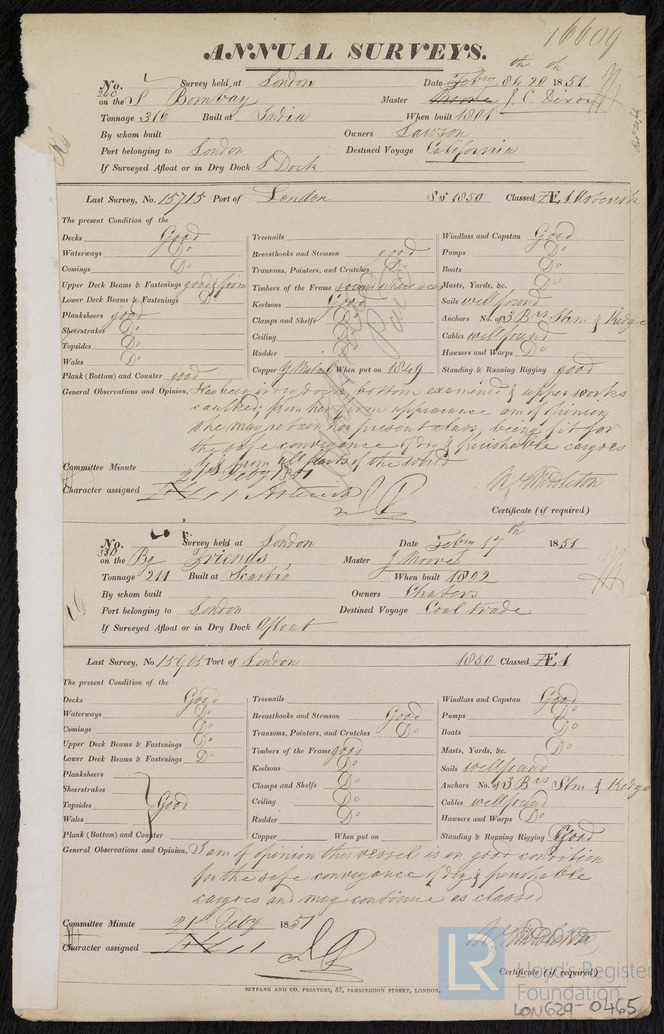 16609
ANNUAL SURVEYS.
No. 260 Survey held at London Date Feby 8th 20th 1851
on the S Bombay Master J. C. Dixon
Tonnage 316 Built at India When built 1801
By whom built Owners Lawson
Port belonging to London Destined Voyage California
If Surveyed Afloat or in Dry Dock S Dock
Last Survey, No. 15715 Port of London 1850 Classed Æ 1
The present Condition of the
Decks Good Treenails Windlass and Capstan Good
Waterways Do Breasthooks and Stemson good Pumps Do
Comings Do Transoms, Pointers, and Crutches Do Boats Do
Upper Deck Beams & Fastenings good & firm Timbers of the Frame sound where seen Masts, Yards, &c. Do
Lower Deck Beams & Fastenings Do Keelsons Good Sails well found
Planksheers good Clamps and Shelfs Do Anchors No. of 3 Brs Stm & Kedge
Sheerstrakes Do Ceiling Do Cables well found
Topsides Do Rudder Do Hawsers and Warps Do
Wales Do Copper Y Metal When put on 1849 Standing & Running Rigging good
Plank (Bottom) and Counter good
General Observations and Opinion, Has been in dry dock, bottom examined & upper works
caulked; from her firm appearance am of opinion
she may retain her present class, being fit for
the safe conveyance of dry & perishable cargoes
to & from all parts of the world
Committee Minute 21st Feby 1851
Character assigned
W Middleton
Certificate (if required)
No. 330 Survey held at London Date Feby 17th 1851
on the Bg Friends Master J Moore
Tonnage 211 Built at Scarbro When built 1802
By whom built Owners Chabers
Port belonging to London Destined Voyage Coal trade
If Surveyed Afloat or in Dry Dock Afloat
Last Survey, No. 15905 Port of London 1850 Classed Æ 1
The present Condition of the
Decks Good Treenails Windlass and Capstan Good
Waterways Do Breasthooks and Stemson Good Pumps Do
Comings Do Transoms, Pointers, and Crutches Do Boats Do
Upper Deck Beams & Fastenings Do Timbers of the Frame good Masts, Yards, &c. Do
Lower Deck Beams & Fastenings Do Keelsons Do Sails well found
Planksheers Clamps and Shelfs Do Anchors No. of 3 Brs Stm & Kedge
Sheerstrakes Ceiling Do Cables well found
Topsides Good Rudder Do Hawsers and Warps Do
Wales Copper When put on Standing & Running Rigging Good
Plank (Bottom) and Counter
General Observations and Opinion, I am of opinion this vessel is in good condition
for the safe conveyance of dry & perishable
cargoes and may continue as classed
Committee Minute 21st Feby 1851
Character assigned
W Middleton
Certificate (if required)
SEYFANG AND CO. PRINTERS, 57, FARRINGDON STREET, LONDON.
LR
© 2019
Lloyd's Register
Foundation
LON629-0465